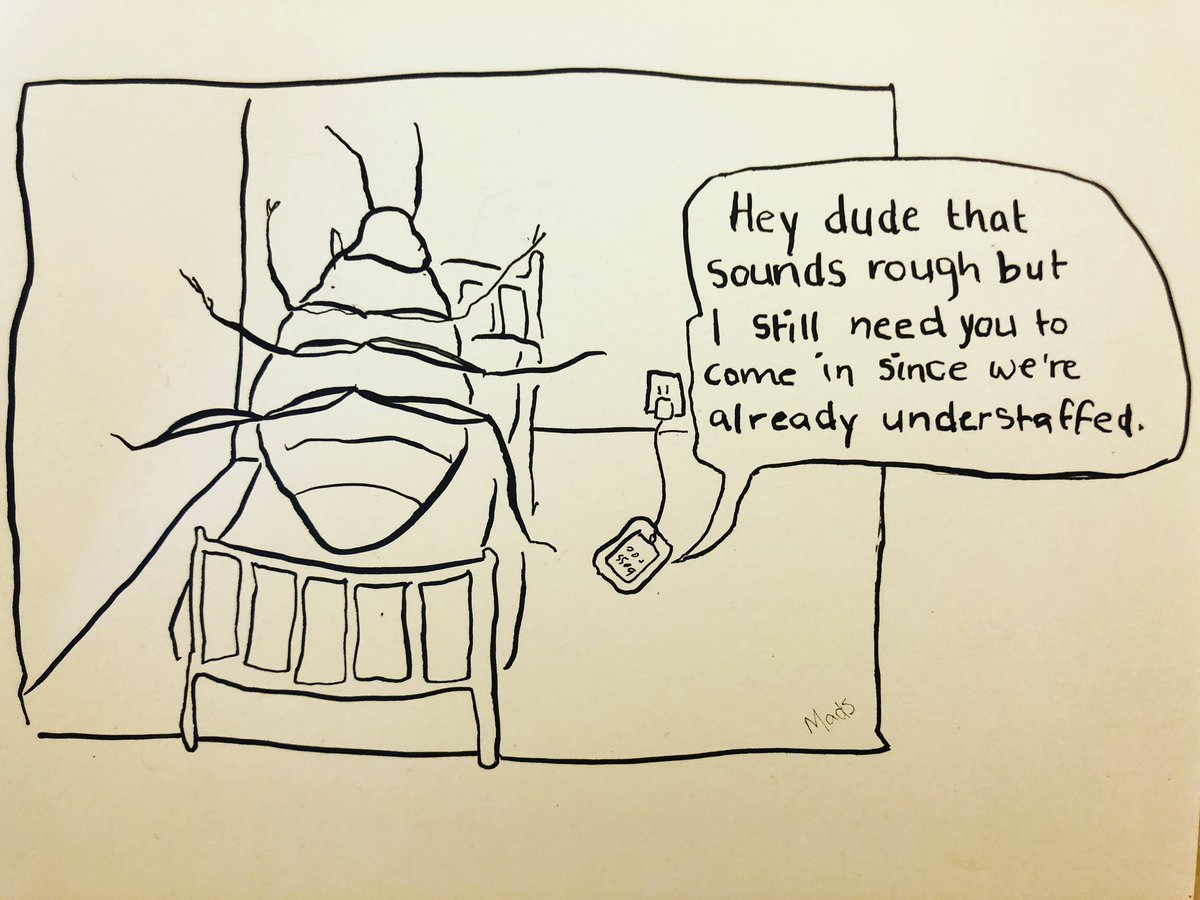 Hey dude that
sounds rough but
I still need you to
come in since we're
already understaffed.
BOSS
Mads